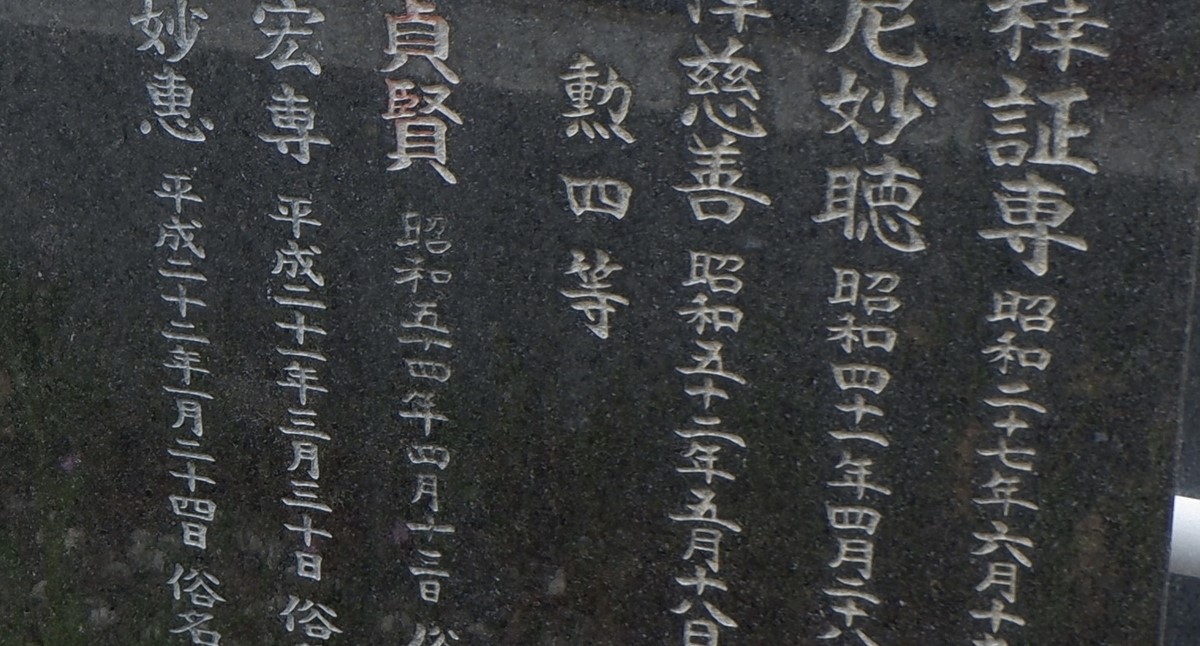 証専 昭和二十七年六月十
尼妙聴 昭和四十一年四月二十八
慈善 昭和五十二年五月十八日
勲四等
貞賢 昭和五十四年四月十三日 俗
宏専 平成二十一年三月三十日 俗
妙恵 平成二十二年一月二十四日 俗名